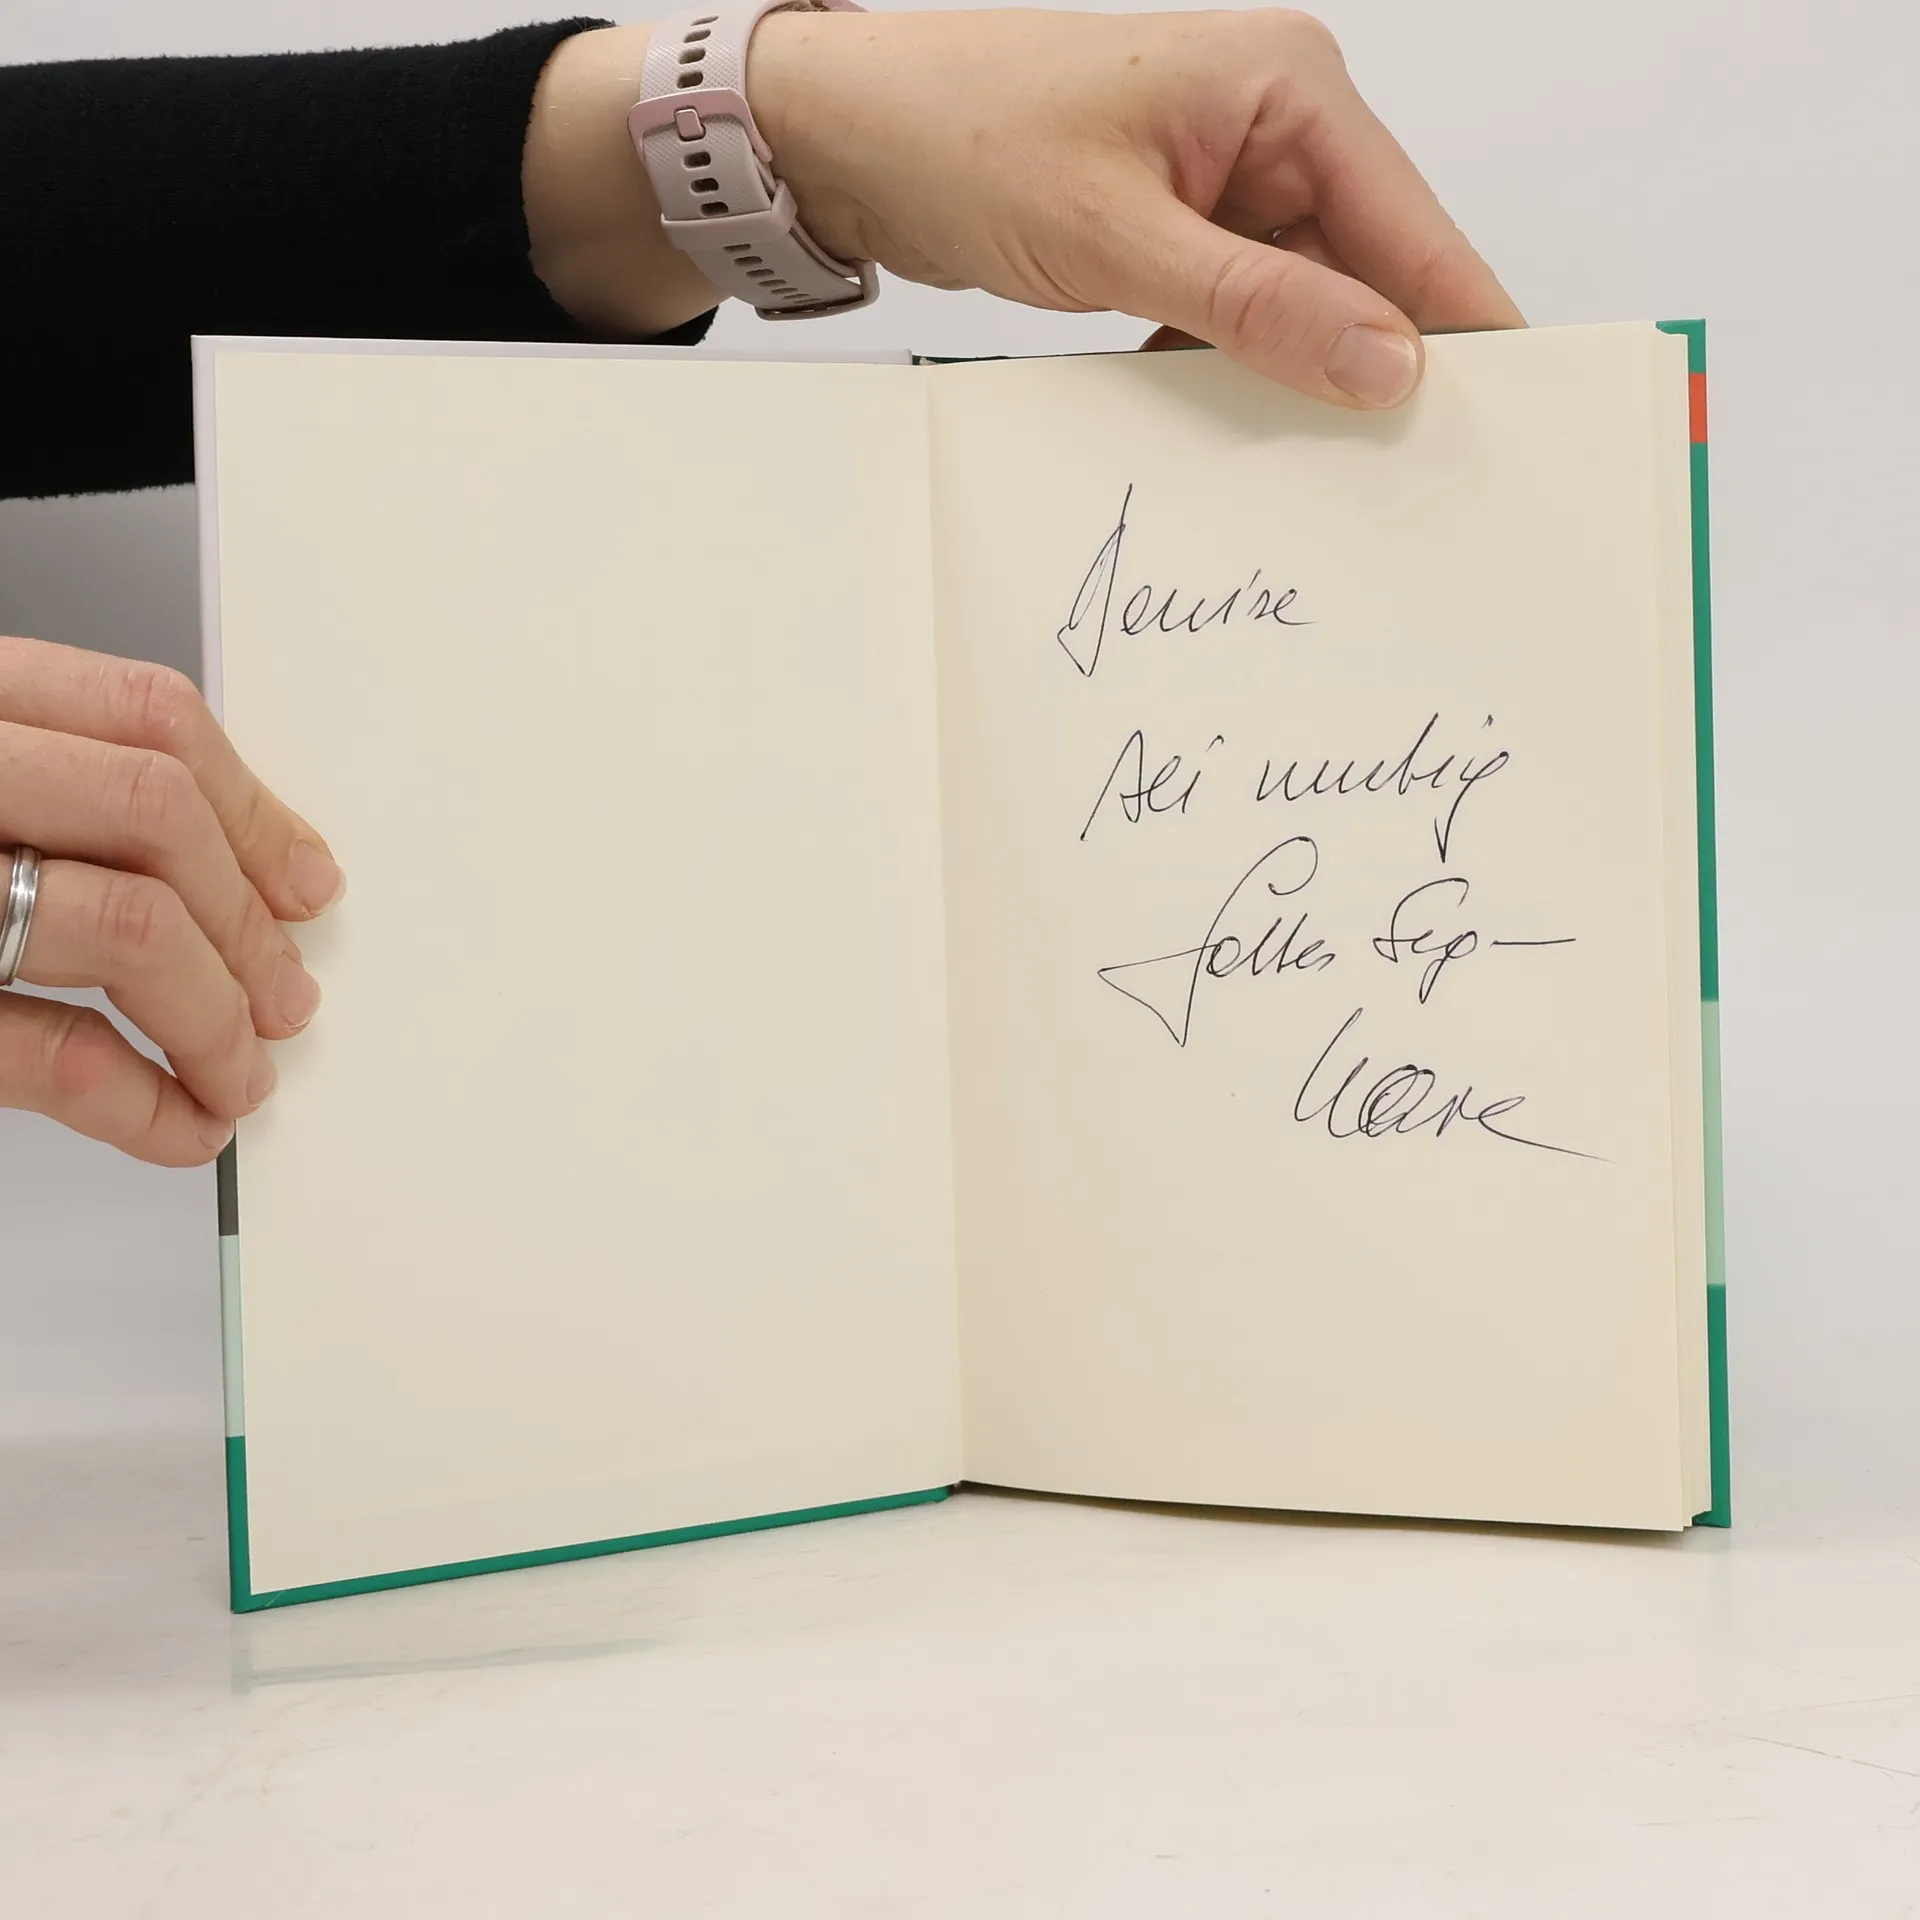 Denise
sei mutig
Gottes Segen